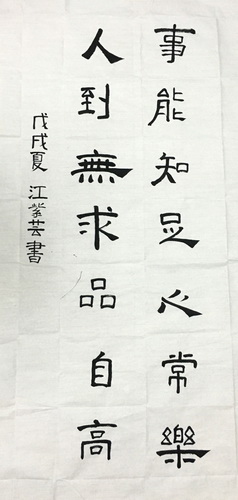 事能知足心常樂
人到無求品自高
戊戌夏 江紫芸書